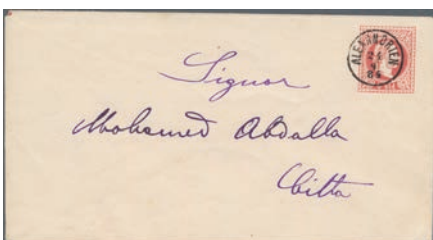 ALEXANDRIEN
Signor
Mohamed Abdalla
Citta